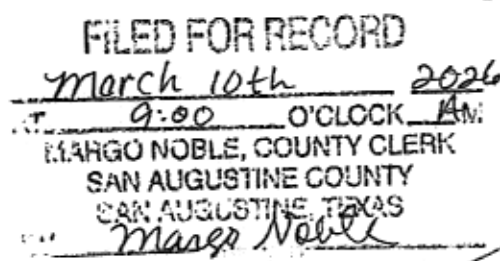 FILED FOR RECORD
March 10th 2026
AT 9:00 O'CLOCK AM.
MARGO NOBLE, COUNTY CLERK
SAN AUGUSTINE COUNTY
SAN AUGUSTINE, TEXAS
Margo Noble